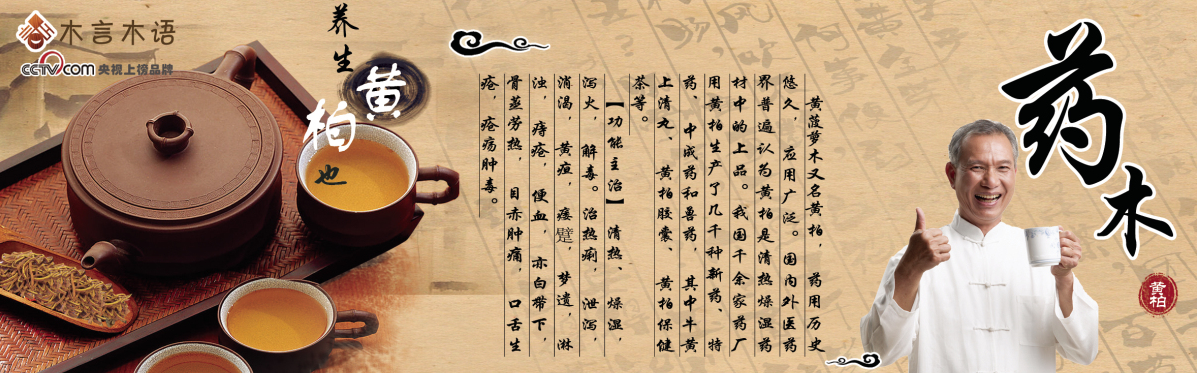 木言木语
CCTV.com 央视上榜品牌
养生
黄柏也
药木
黄柏
黄菠萝木又名黄柏，药用历史
悠久，应用广泛。国内外医药
界普遍认为黄柏是清热燥湿药
材中的上品。我国千余家药厂
用黄柏生产了几千种新药、特
药、中成药和兽药，其中牛黄
上清丸、黄柏胶囊、黄柏保健
茶等。
【功能主治】清热、燥湿，
泻火，解毒。治热痢，泄泻，
消渴，黄疸，痿躄，梦遗，淋
浊，痔疮，便血，赤白带下，
骨蒸劳热，目赤肿痛，口舌生
疮，疮疡肿毒。